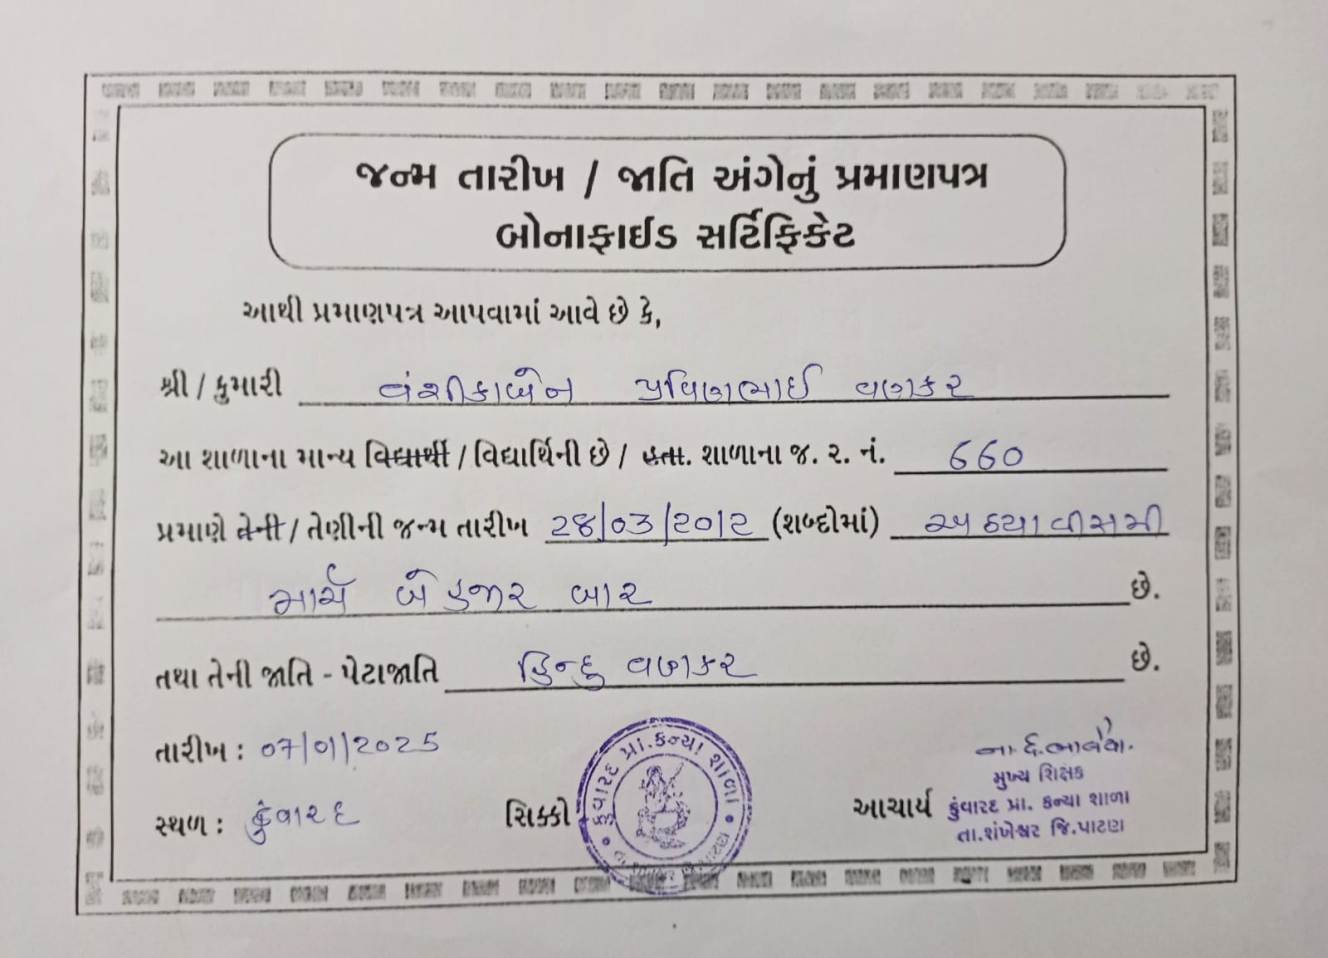 જન્મ તારીખ / જાતિ અંગેનું પ્રમાણપત્ર
બોનાફાઈડ સર્ટિફિકેટ
આથી પ્રમાણપત્ર આપવામાં આવે છે કે,
શ્રી / કુમારી વંશીકાબેન પ્રવિણભાઈ વણકર
આ શાળાના માન્ય વિદ્યાર્થી / વિદ્યાર્થિની છે / હતા. શાળાના જ. ર. નં. 660
પ્રમાણે તેની / તેણીની જન્મ તારીખ 28/03/2012 (શબ્દોમાં) અઠયાવીસમી
માર્ચ બે હજાર બાર છે.
તથા તેની જાતિ - પેટાજાતિ હિન્દુ વણકર છે.
તારીખ : 07/01/2025
સ્થળ : કુંવારદ
સિક્કો
કુંવારદ પ્રા. કન્યા શાળા
આચાર્ય
મુખ્ય શિક્ષક
કુંવારદ પ્રા. કન્યા શાળા
તા.શંખેશ્વર જિ.પાટણ